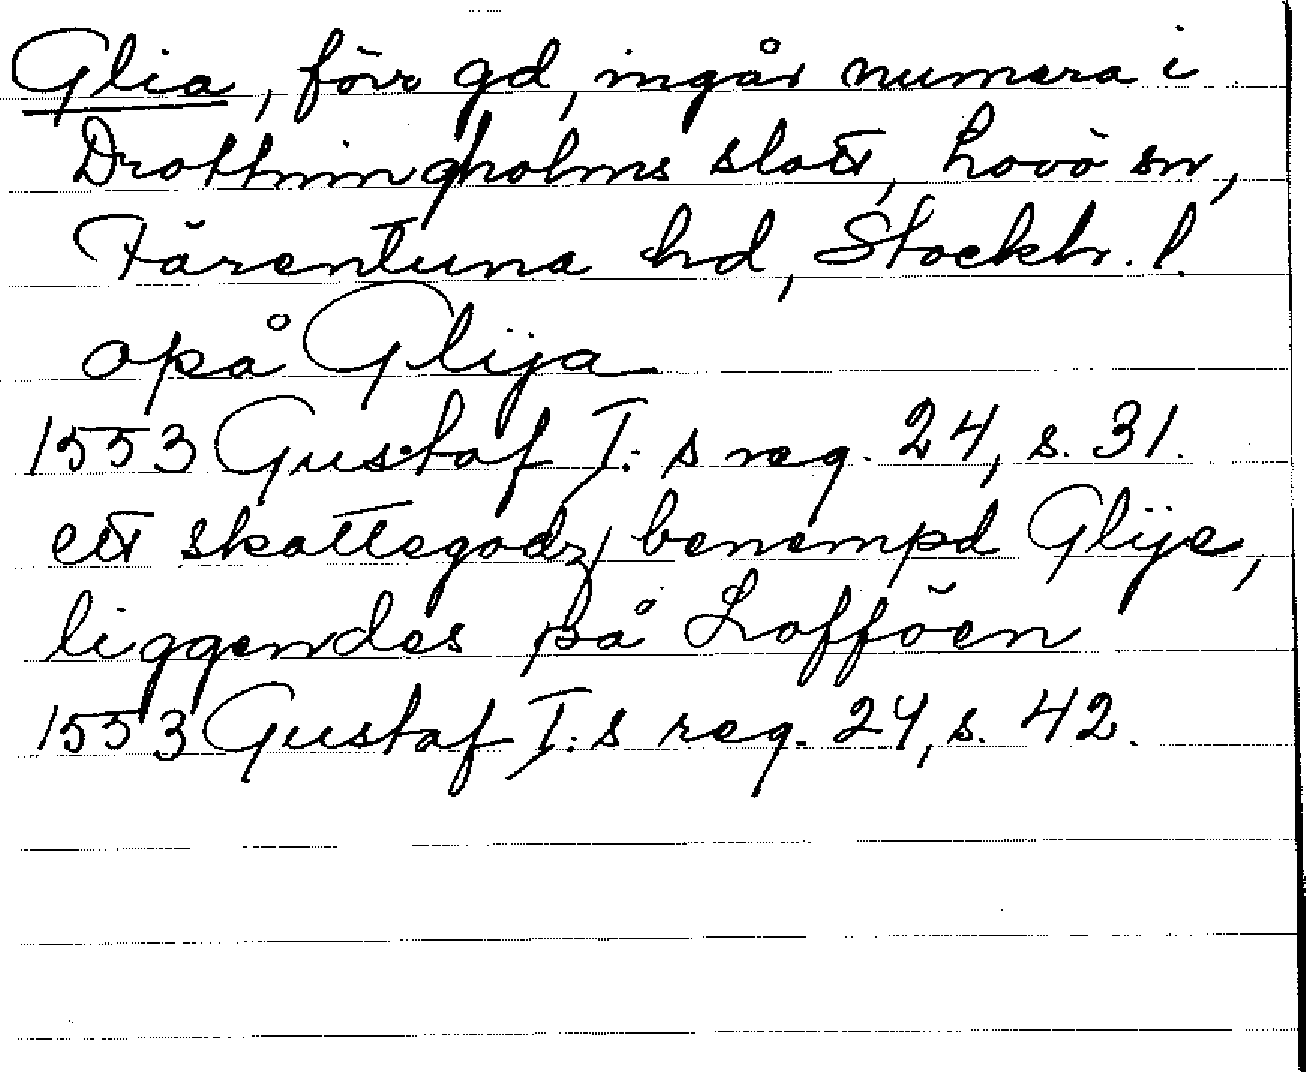 Glia, förr gd, ingår numera i
Drottningholms slott, Lovö sn,
Färentuna hd, Stockh. l.
opå Glija
1553 Gustaf I:s reg. 24, s. 31.
ett skattegodz, benempd Glije,
liggendes på Lofföen
1553 Gustaf I:s reg. 24, s. 42.